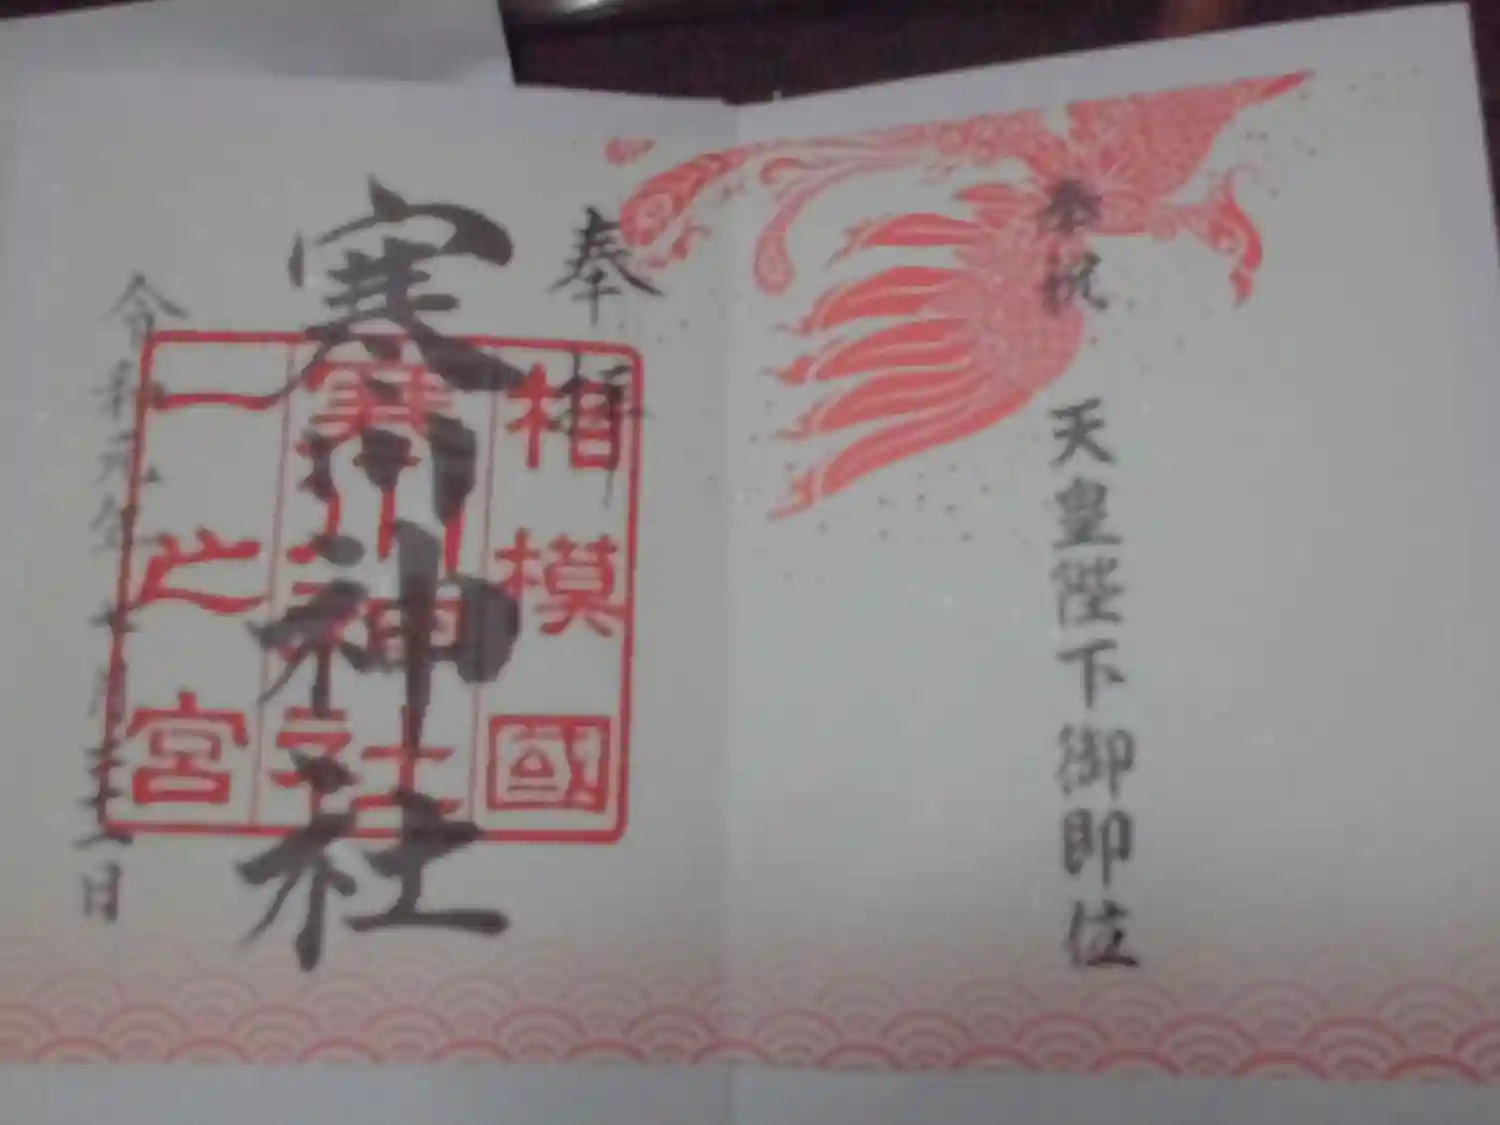 奉祝
天皇陛下御即位
奉拝
寒川神社
相模國
寒川神社
一之宮
令和元年七月二十二日